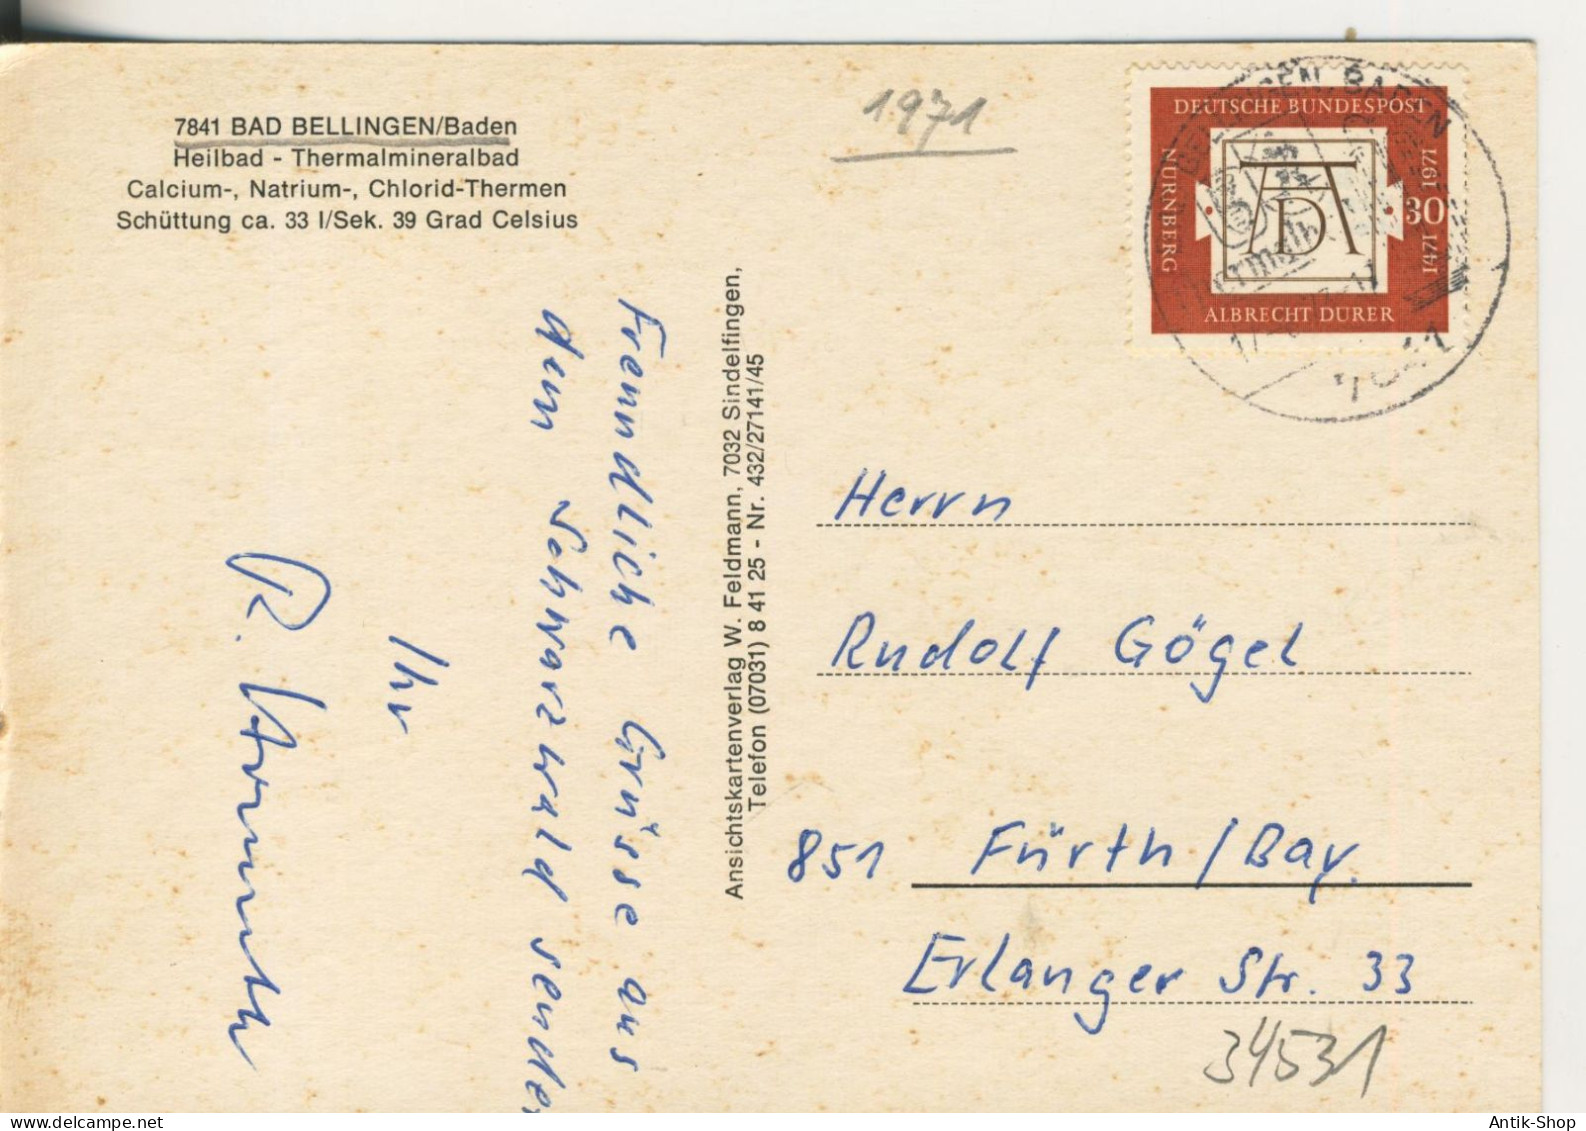 7841 BAD BELLINGEN/Baden
Heilbad - Thermalmineralbad
Calcium-, Natrium-, Chlorid-Thermen
Schüttung ca. 33 l/Sek. 39 Grad Celsius
1971
DEUTSCHE BUNDESPOST
NÜRNBERG
AD
30
1471 1971
ALBRECHT DÜRER
BADEN
Freundliche Grüsse aus
dem Schwarzwald sendet
Ihr
R.
Ansichtskartenverlag W. Feldmann, 7032 Sindelfingen,
Telefon (07031) 8 41 25 - Nr. 432/27141/45
Herrn
Rudolf Gögel
851 Fürth/Bay.
Erlanger Str. 33
34531
Antik-Shop